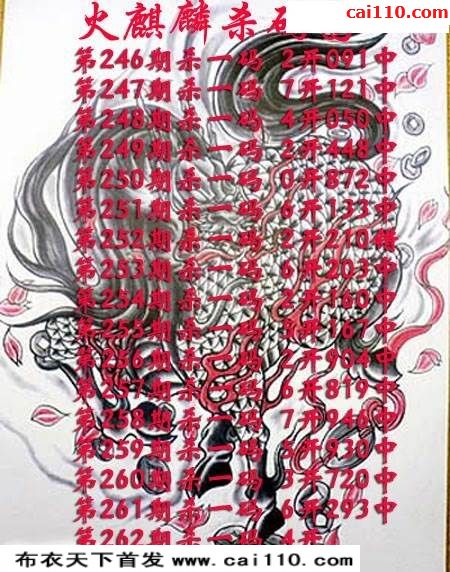 cai110.com
火麒麟杀码
第246期杀一码 2开091中
第247期杀一码 7开121中
第248期杀一码 4开050中
第249期杀一码 2开448中
第250期杀一码 0开872中
第251期杀一码 6开133中
第252期杀一码 2开210错
第253期杀一码 6开203中
第254期杀一码 2开160中
第255期杀一码 开167中
第256期杀一码 2开904中
第257期杀一码 6开819中
第258期杀一码 7开946中
第259期杀一码 5开930中
第260期杀一码 3开720中
第261期杀一码 6开293中
第262期杀一码 4开
布衣天下首发 www.cai110.com